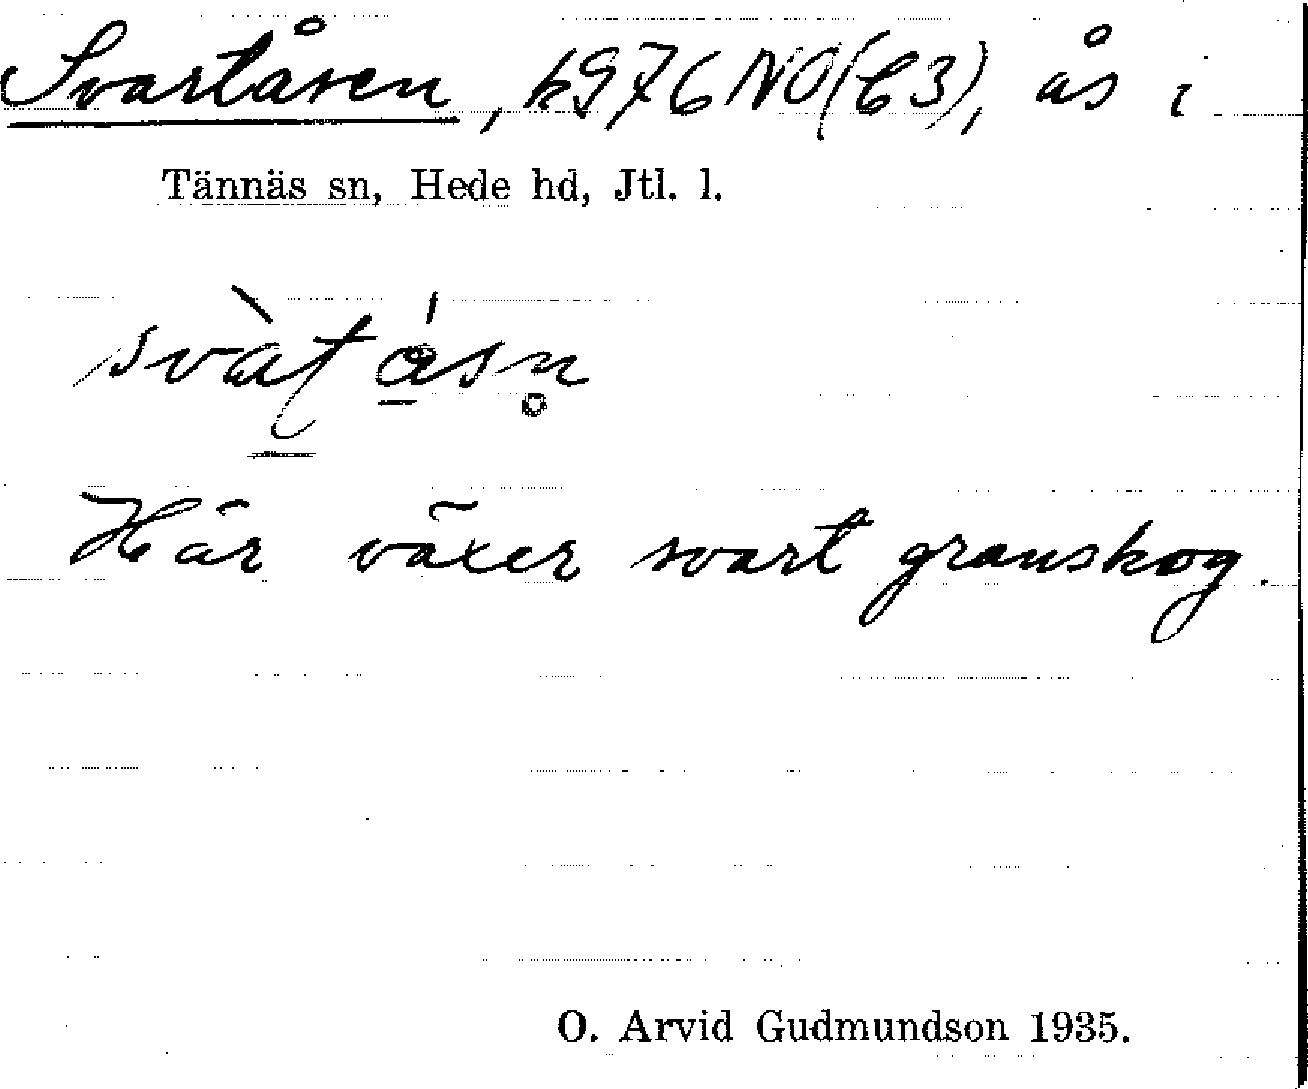 Svartåsen, k976NO(C3), ås i
Tännäs sn, Hede hd, Jtl. l.
Här växer svart granskog.
O. Arvid Gudmundson 1935.